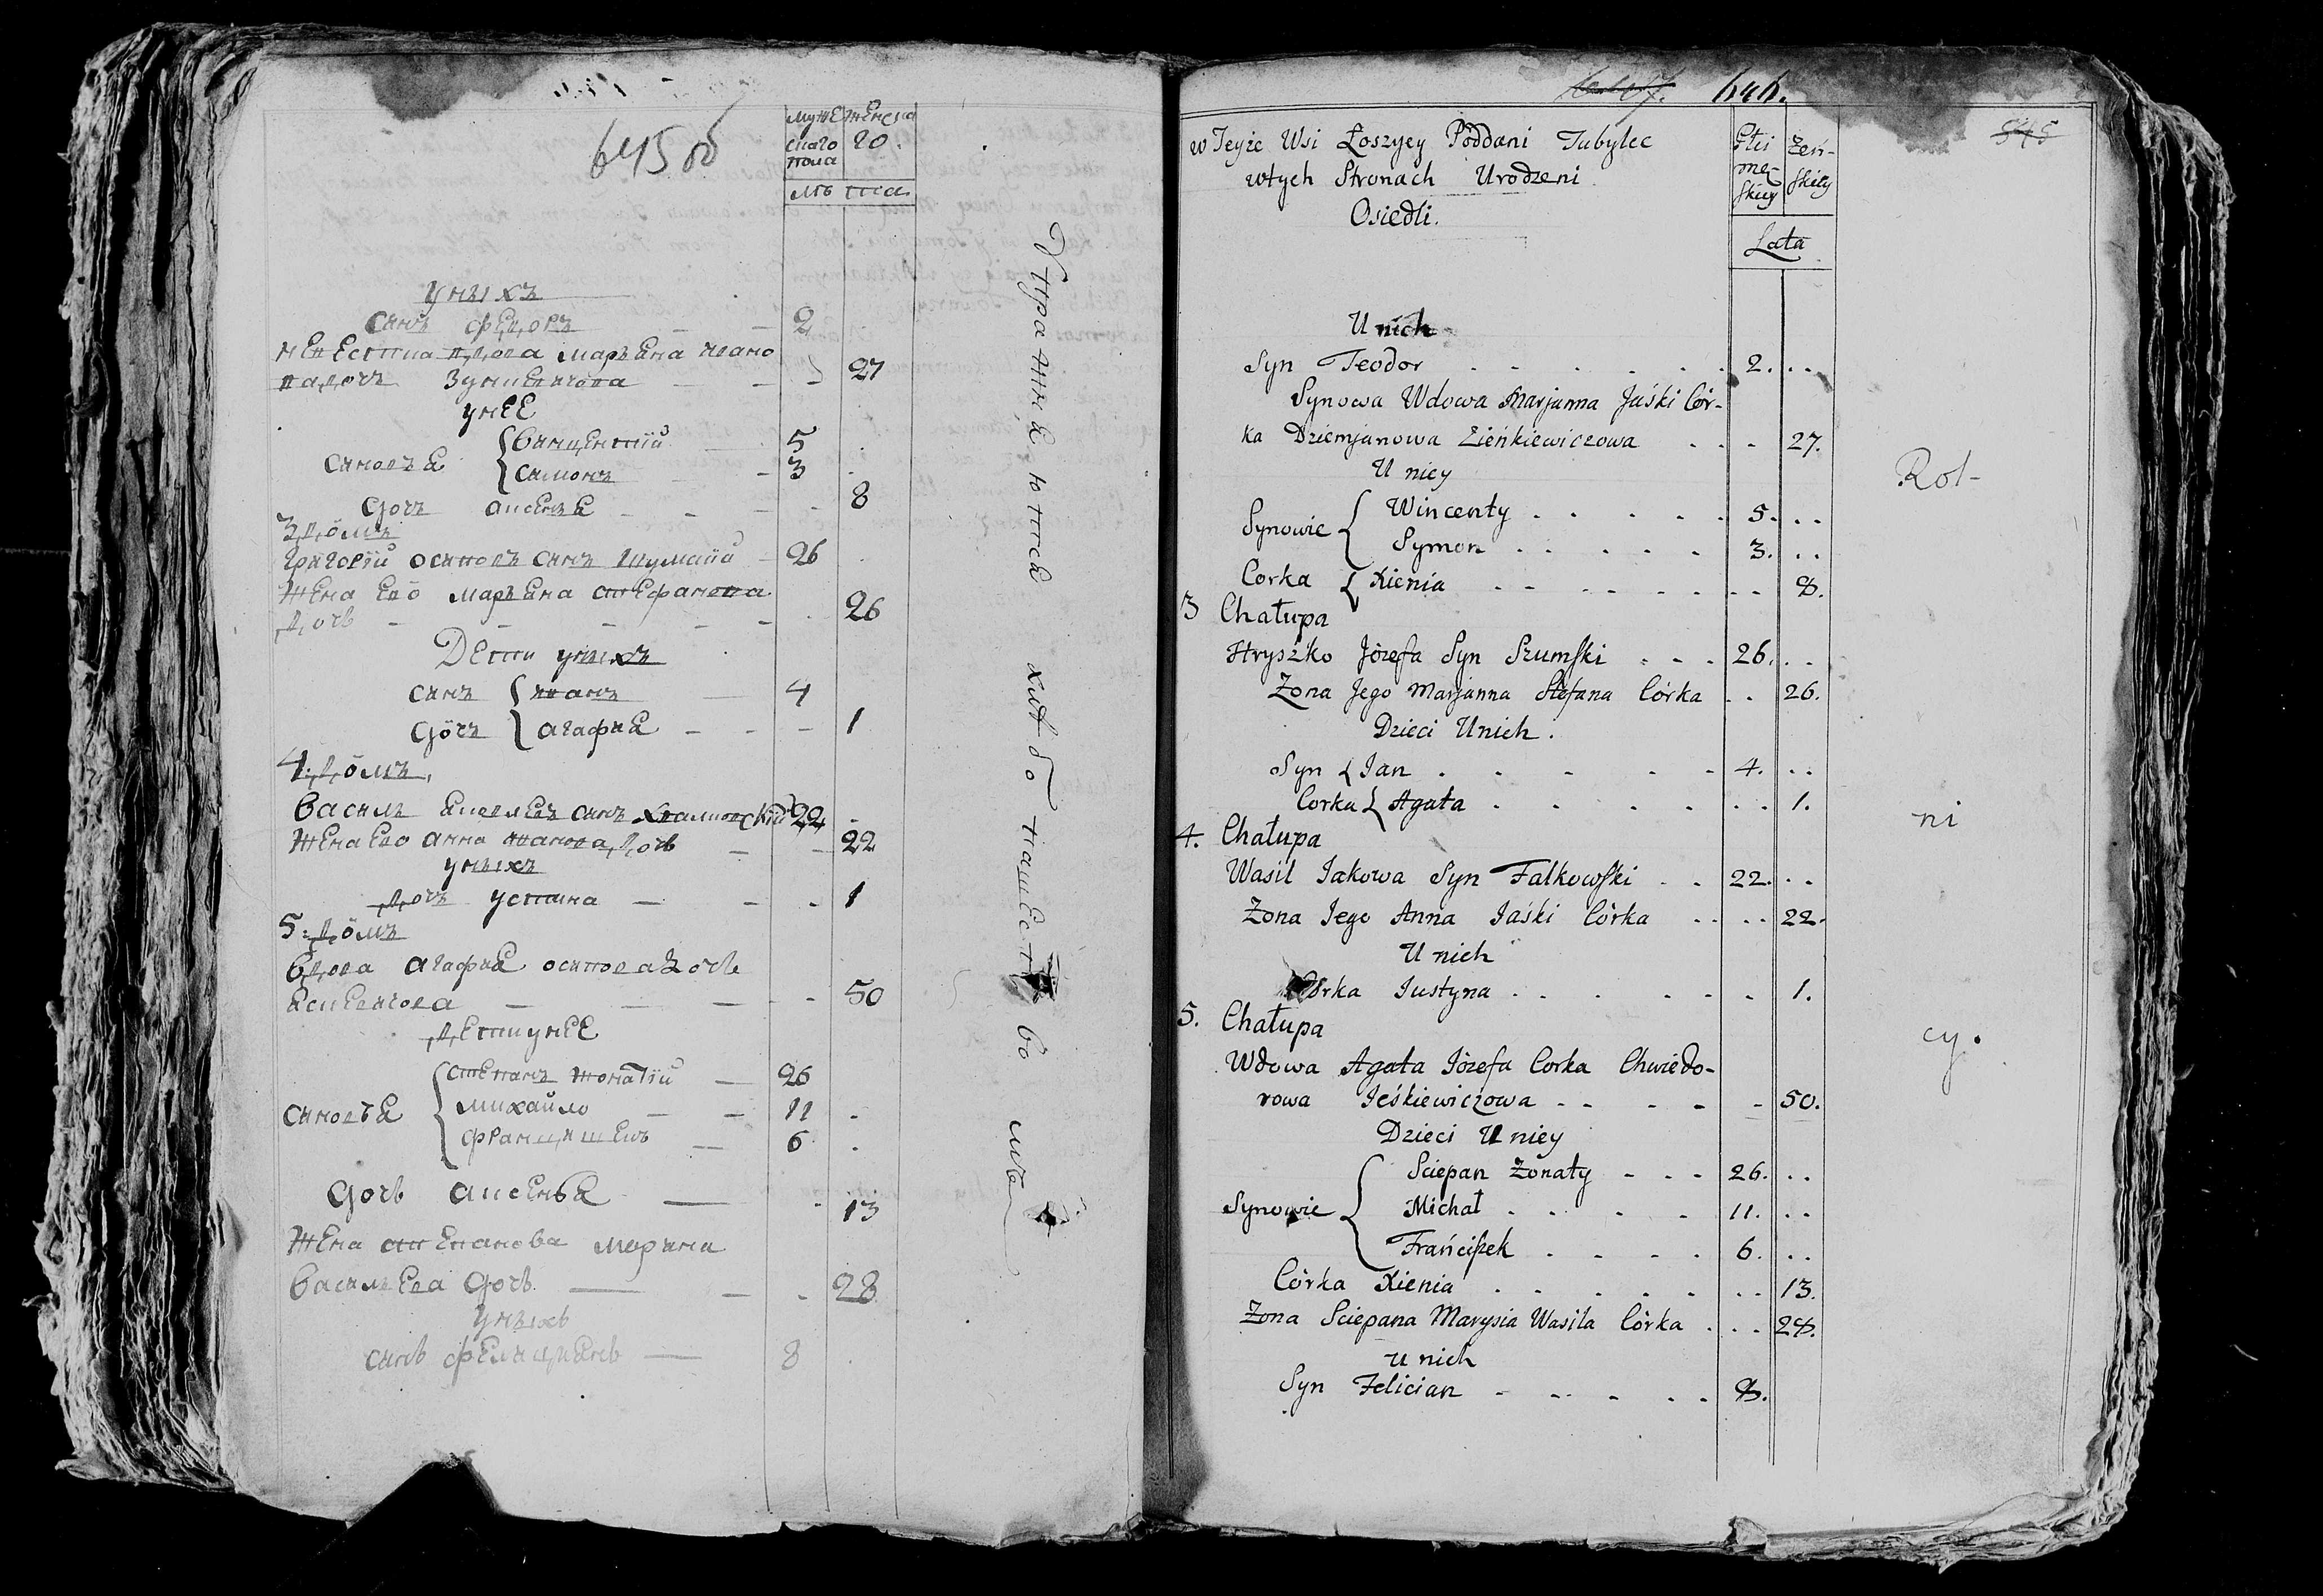 645 об
муже
скаго
пола
женска
го.
лѣта
унихъ
Синъ Феодоръ 2
невестка вдова Марьяна Ивано
ва дочь 27
унее
Синовья Винцентiй 5
Симонъ 3
Дочь Аксенья 8
3 домъ
Григорiй Осиповъ синъ Шумскiй 26
Жена его Марьяна Стефанова
дочь 26
Дети унихъ
Синъ Иванъ 4
Дочь Агафия 1
4. домъ
Василь Яковлевъ синъ Хвалковскiй 22
Жена его Анна Иванова дочь 22
унихъ
дочь Устина 1
5. домъ
Вдова Агафия Осипова дочь
Ескевичова 50
дети унее
Синовья Степанъ Жонатiй 26
Михайло 11
Францишекъ 6
Дочь Аксенья 13
Жена Степанова Марина
Васильева дочь 28
Унихъ
синъ Фелициянъ 8
646.
545
w Teyże Wsi Łoszyey Poddani Tubylec
wtych Stronach Urodzeni
Osiedli.
Płci
mę-
skiey
Żeń-
skiey
Lata
U nich
Syn Teodor 2.
Synowa Wdowa Marjanna Jaśki Cór-
ka Dziemjanowa Zieńkiewiczowa 27.
U niey
Synowie { Wincenty 5.
Symon 3.
Corka { Xienia 8.
3 Chałupa
Hryszko Józefa Syn Szumski 26.
Żona Jego Marjanna Stefana Córka 26.
Dzieci Unich.
Syn { Jan 4.
Corka { Agata 1.
4. Chałupa
Wasil Jakowa Syn Falkowski 22.
Żona Jego Anna Jaśki Córka 22.
U nich
Córka Justyna 1.
5. Chałupa
Wdowa Agata Józefa Corka Chwiedo-
rowa Jeśkiewiczowa 50.
Dzieci U niey
Synowie { Sciepan Żonaty 26.
Michał 11.
Frańciszek 6.
Córka Xienia 13.
Żona Sciepana Marysia Wasila Córka 28.
u nich
Syn Felician 8.
Rol-
ni
cy.